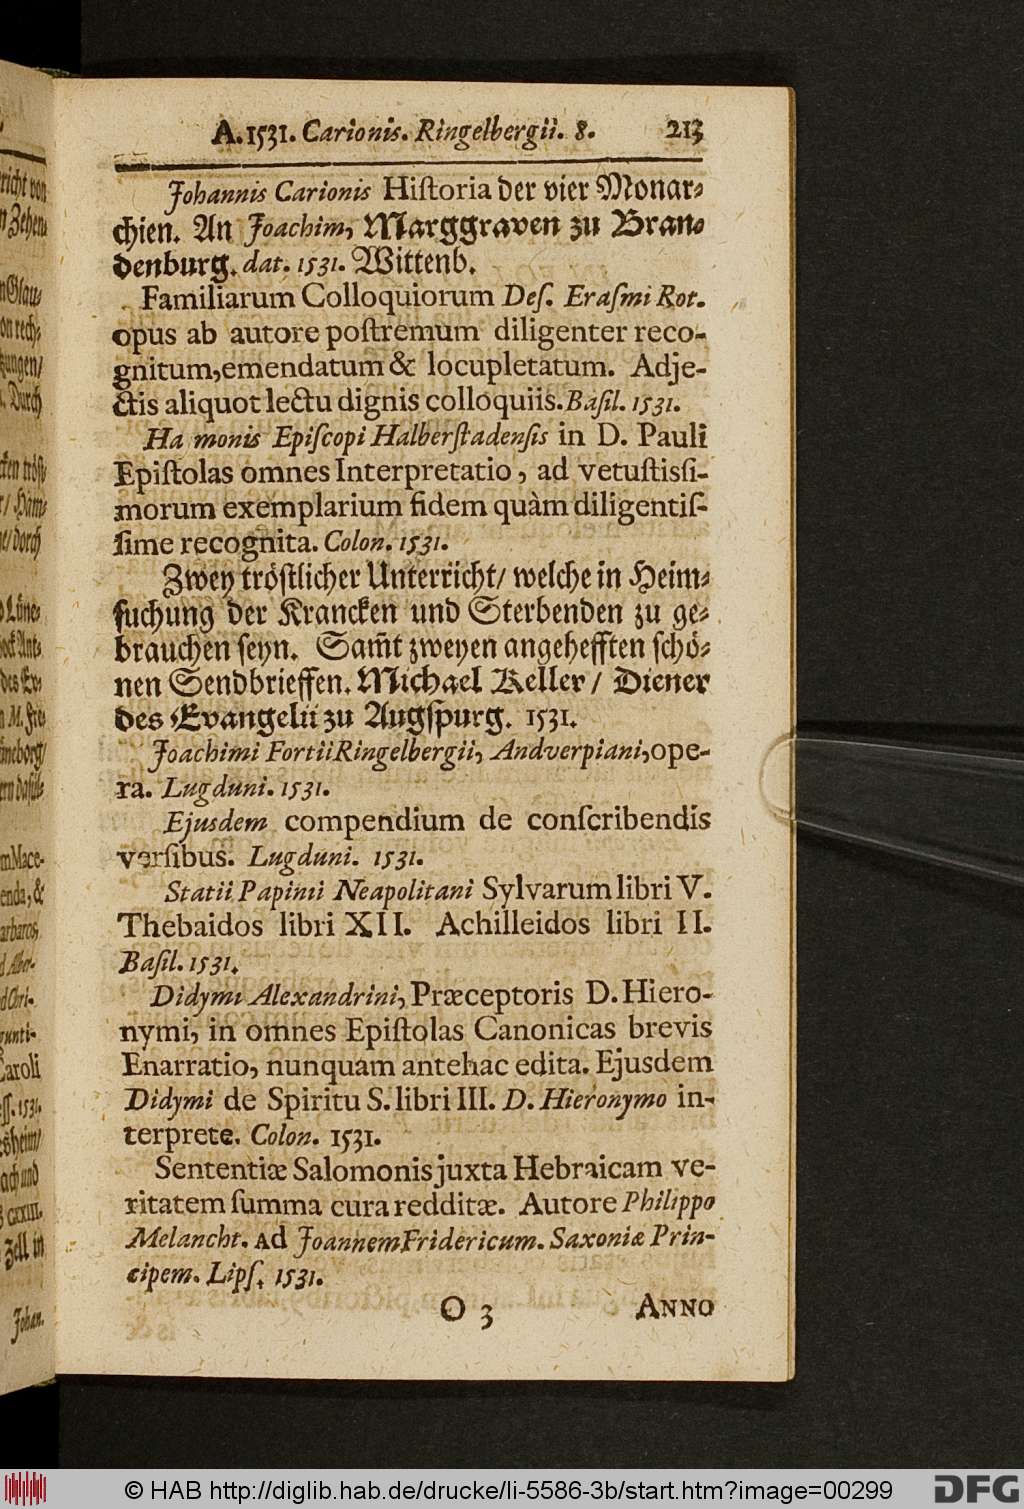 A. 1531. Carionis. Ringelbergii. 8. 213
Johannis Carionis Hiſtoria der vier Monar⸗
chien. An Joachim, Marggraven zu Bran⸗
denburg. dat. 1531. Wittenb.
Familiarum Colloquiorum Deſ. Eraſmi Rot.
opus ab autore poſtremum diligenter reco-
gnitum, emendatum & locupletatum. Adje-
ctis aliquot lectu dignis colloquiis. Baſil. 1531.
Ha monis Epiſcopi Halberſtadenſis in D. Pauli
Epiſtolas omnes Interpretatio, ad vetuſtisſi-
morum exemplarium fidem quàm diligentiſ-
ſime recognita. Colon. 1531.
Zwey tröſtlicher Unterricht/ welche in Heim⸗
ſuchung der Krancken und Sterbenden zu ge⸗
brauchen ſeyn. Sam̃t zweyen angehefften ſchö⸗
nen Sendbrieffen. Michael Keller / Diener
des Evangelii zu Augſpurg. 1531.
Joachimi Fortii Ringelbergii, Andverpiani, ope-
ra. Lugduni. 1531.
Ejusdem compendium de conſcribendis
verſibus. Lugduni. 1531.
Statii Papinii Neapolitani Sylvarum libri V.
Thebaidos libri XII. Achilleidos libri II.
Baſil. 1531.
Didymi Alexandrini, Præceptoris D. Hiero-
nymi, in omnes Epiſtolas Canonicas brevis
Enarratio, nunquam antehac edita. Ejusdem
Didymi de Spiritu S. libri III. D. Hieronymo in-
terprete. Colon. 1531.
Sententiæ Salomonis juxta Hebraicam ve-
ritatem ſumma cura redditæ. Autore Philippo
Melancht. Ad Joannem Fridericum. Saxoniæ Prin-
cipem. Lipſ. 1531.
O 3 ANNO
© HAB http://diglib.hab.de/drucke/li-5586-3b/start.htm?image=00299 DFG